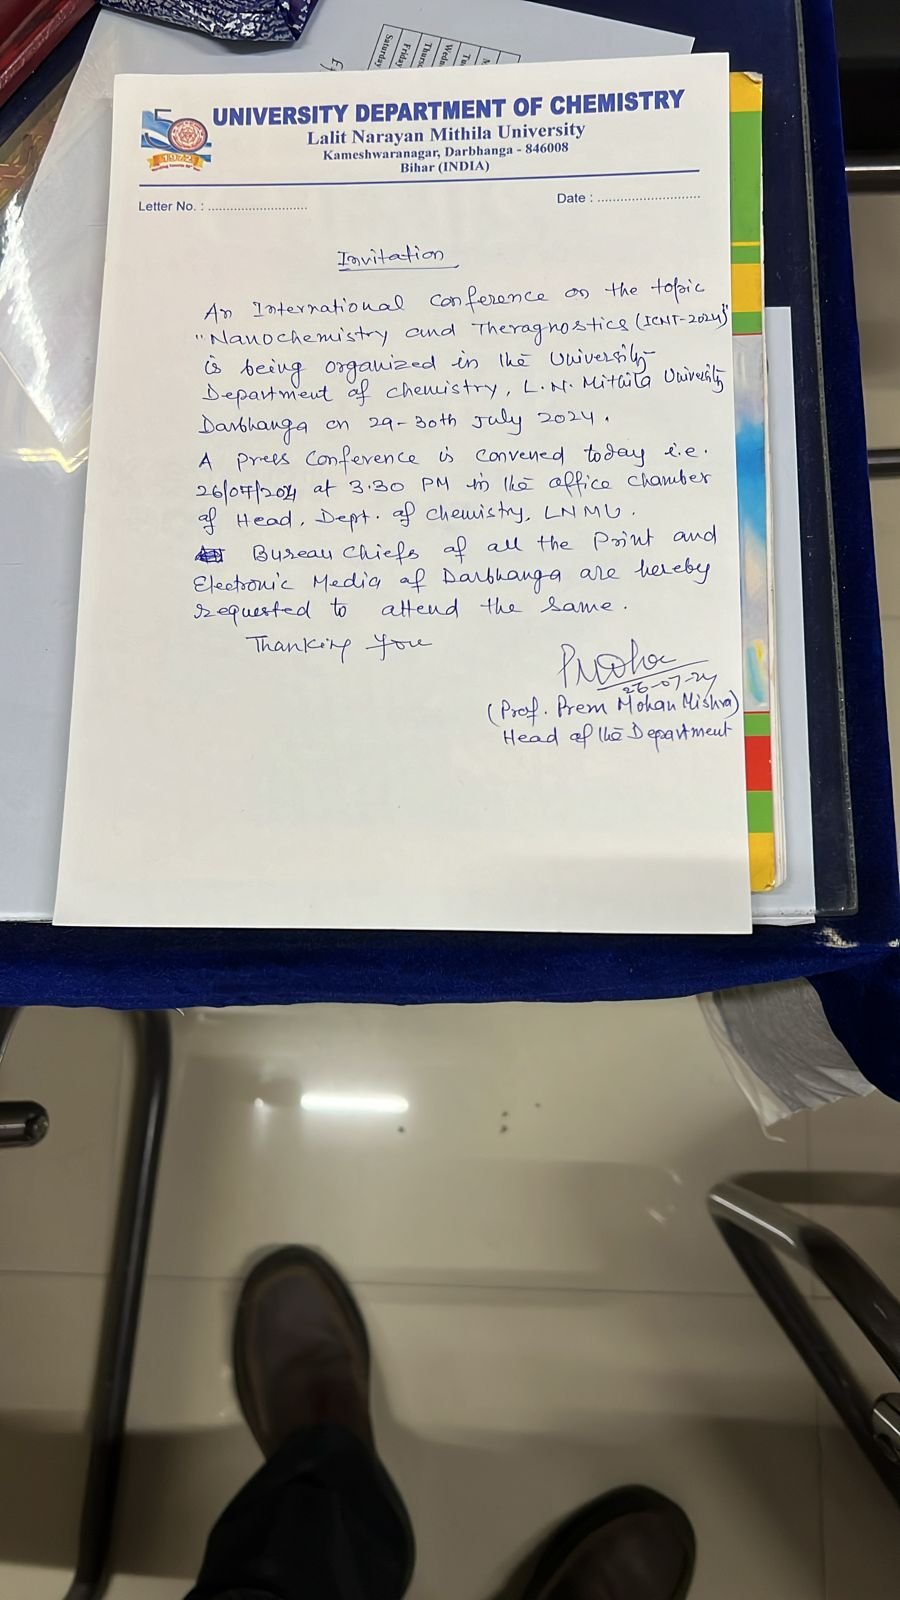 Saturday
Friday
UNIVERSITY DEPARTMENT OF CHEMISTRY
Lalit Narayan Mithila University
Kameshwaranagar, Darbhanga - 846008
Bihar (INDIA)
1972
Letter No. : ............................
Date : ............................
Invitation
An International Conference on the topic
"Nanochemistry and Theragnostics (ICNT-2024)"
is being organized in the University
Department of Chemistry, L.N. Mithila University
Darbhanga on 29-30th July 2024.
A Press Conference is convened today i.e.
26/07/2024 at 3.30 PM in the office chamber
of Head, Dept. of Chemistry, LNMU.
Bureau Chiefs of all the Print and
Electronic Media of Darbhanga are hereby
requested to attend the same.
Thanking You
26-07-24
(Prof. Prem Mohan Mishra)
Head of the Department